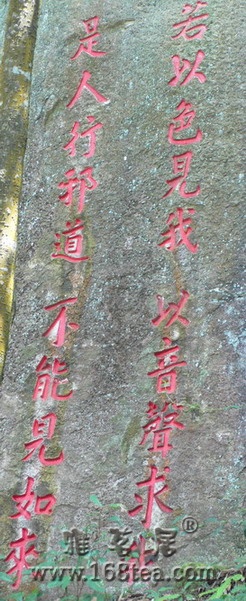 若以色見我 以音聲求我
是人行邪道 不能見如來
雅茗居®
www.168tea.com